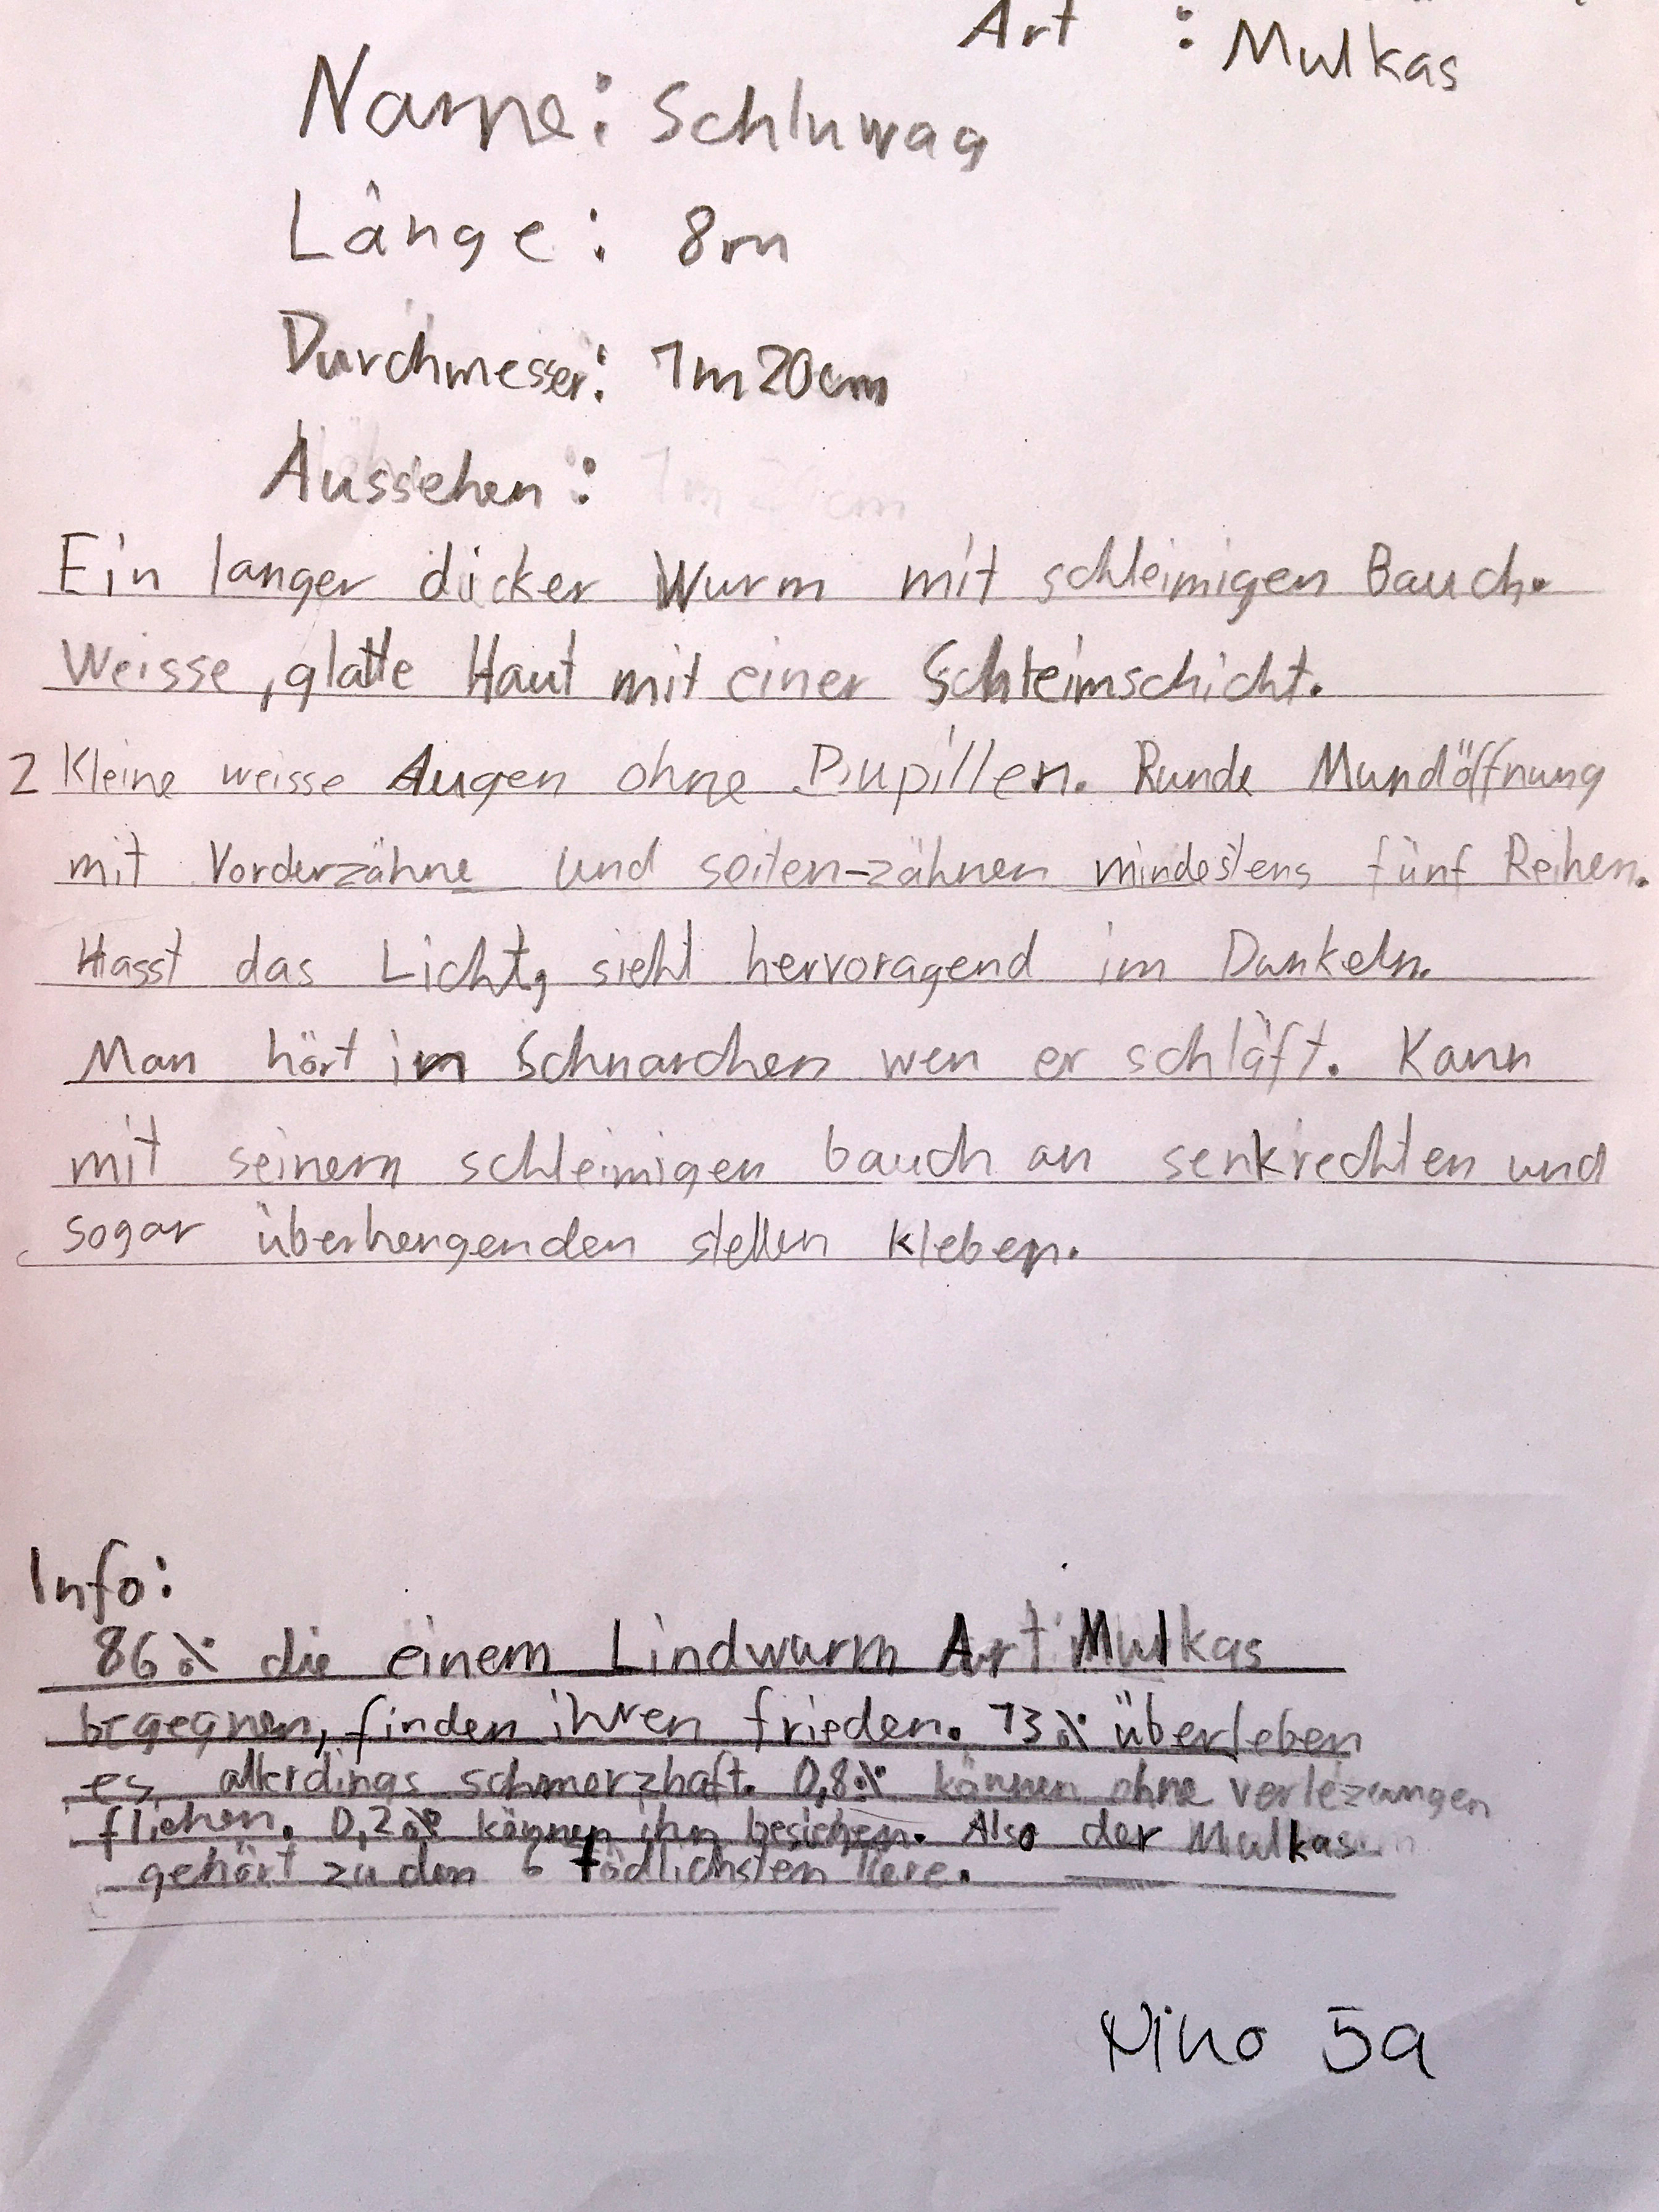 Art : Mulkas
Name: Schluwag
Länge: 8m
Durchmesser: 1m20cm
Aussehen:
Ein langer dicker Wurm mit schleimigen Bauch.
Weisse, glatte Haut mit einer Schleimschicht.
2 Kleine weisse Augen ohne Pupillen. Runde Mundöffnung
mit Vorderzähne und seiten-zähnen mindestens fünf Reihen.
Hasst das Licht, sieht hervoragend im Dunkeln.
Man hört im Schnarchen wen er schläft. Kann
mit seinem schleimigen bauch an senkrechten und
sogar überhengenden stellen kleben.
Info:
86% die einem Lindwurm Art Mulkas
begegnen, finden ihren frieden. 13% überleben
es allerdings schmerzhaft. 0,8% können ohne verlezungen
fliehen. 0,2% können ihn besiehen. Also der Mulkas
gehört zu den 6 tödlichsten tiere.
Nino 5a